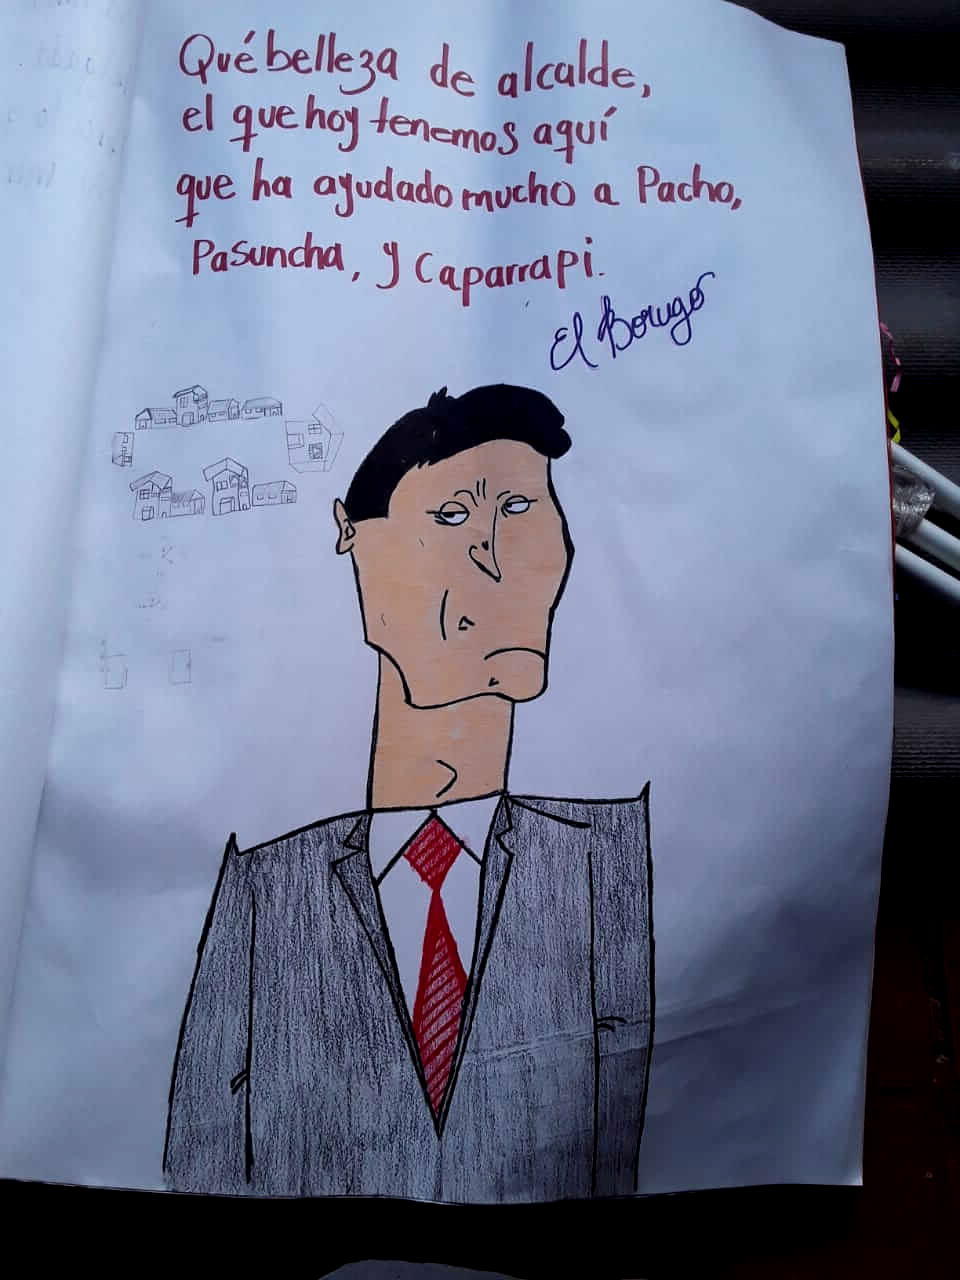 Qué belleza de alcalde,
el que hoy tenemos aquí
que ha ayudado mucho a Pacho,
Pasuncha, y Caparrapi.
El Borugo